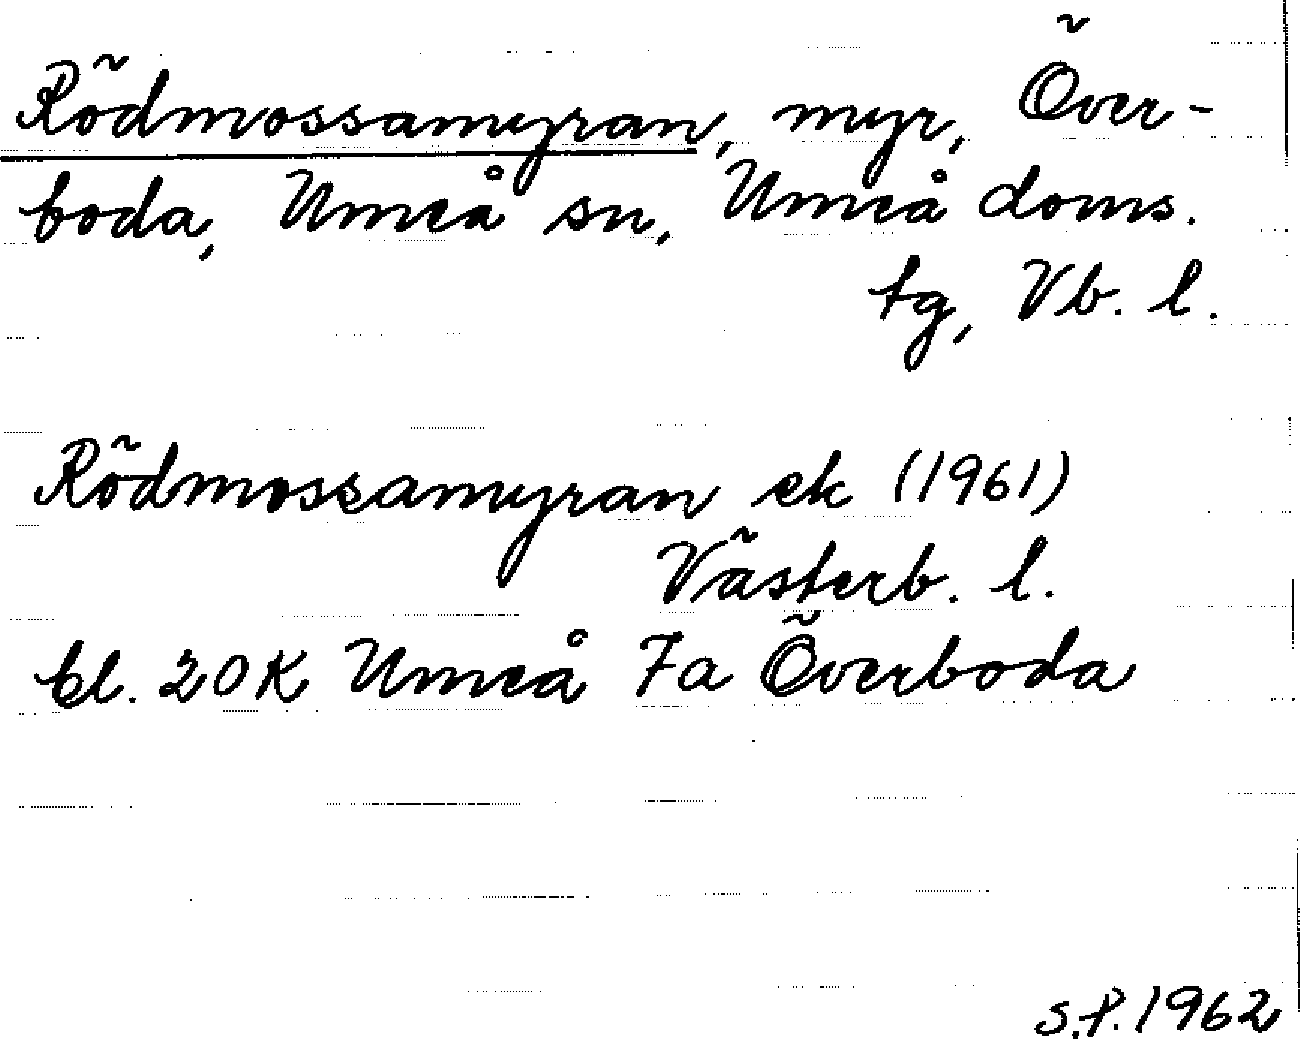 Rödmossamyran, myr, Över-
boda, Umeå sn, Umeå doms.
tg, Vb. l.
Rödmossamyran ek (1961)
Västerb. l.
bl. 20K Umeå 7a Överboda
S.P. 1962